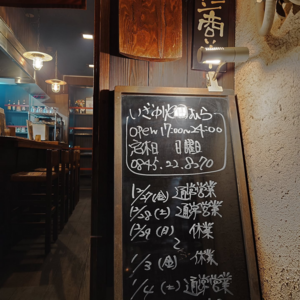 open 17:00〜24:00
定休日 日曜日
0845.22.8370
12/27(金) 通常営業
12/28(土) 通常営業
12/29(日) 休業
〜
1/3(金) 休業
1/4(土) 通常営業